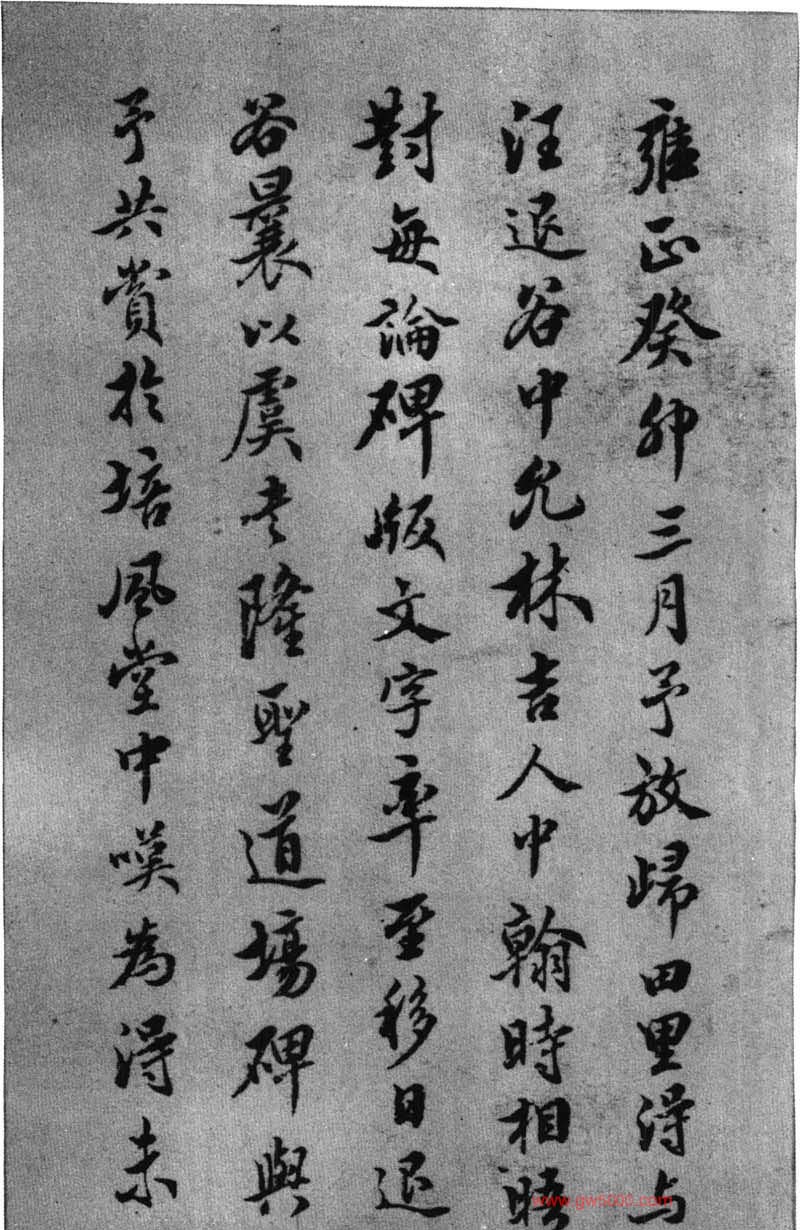 雍正癸卯三月予放歸田里得与
汪退谷中允林吉人中翰時相晤
對每論碑版文字率至移日退
谷曩以虞書隆聖道場碑與
予共賞於培風堂中嘆為得未
www.gw5000.com